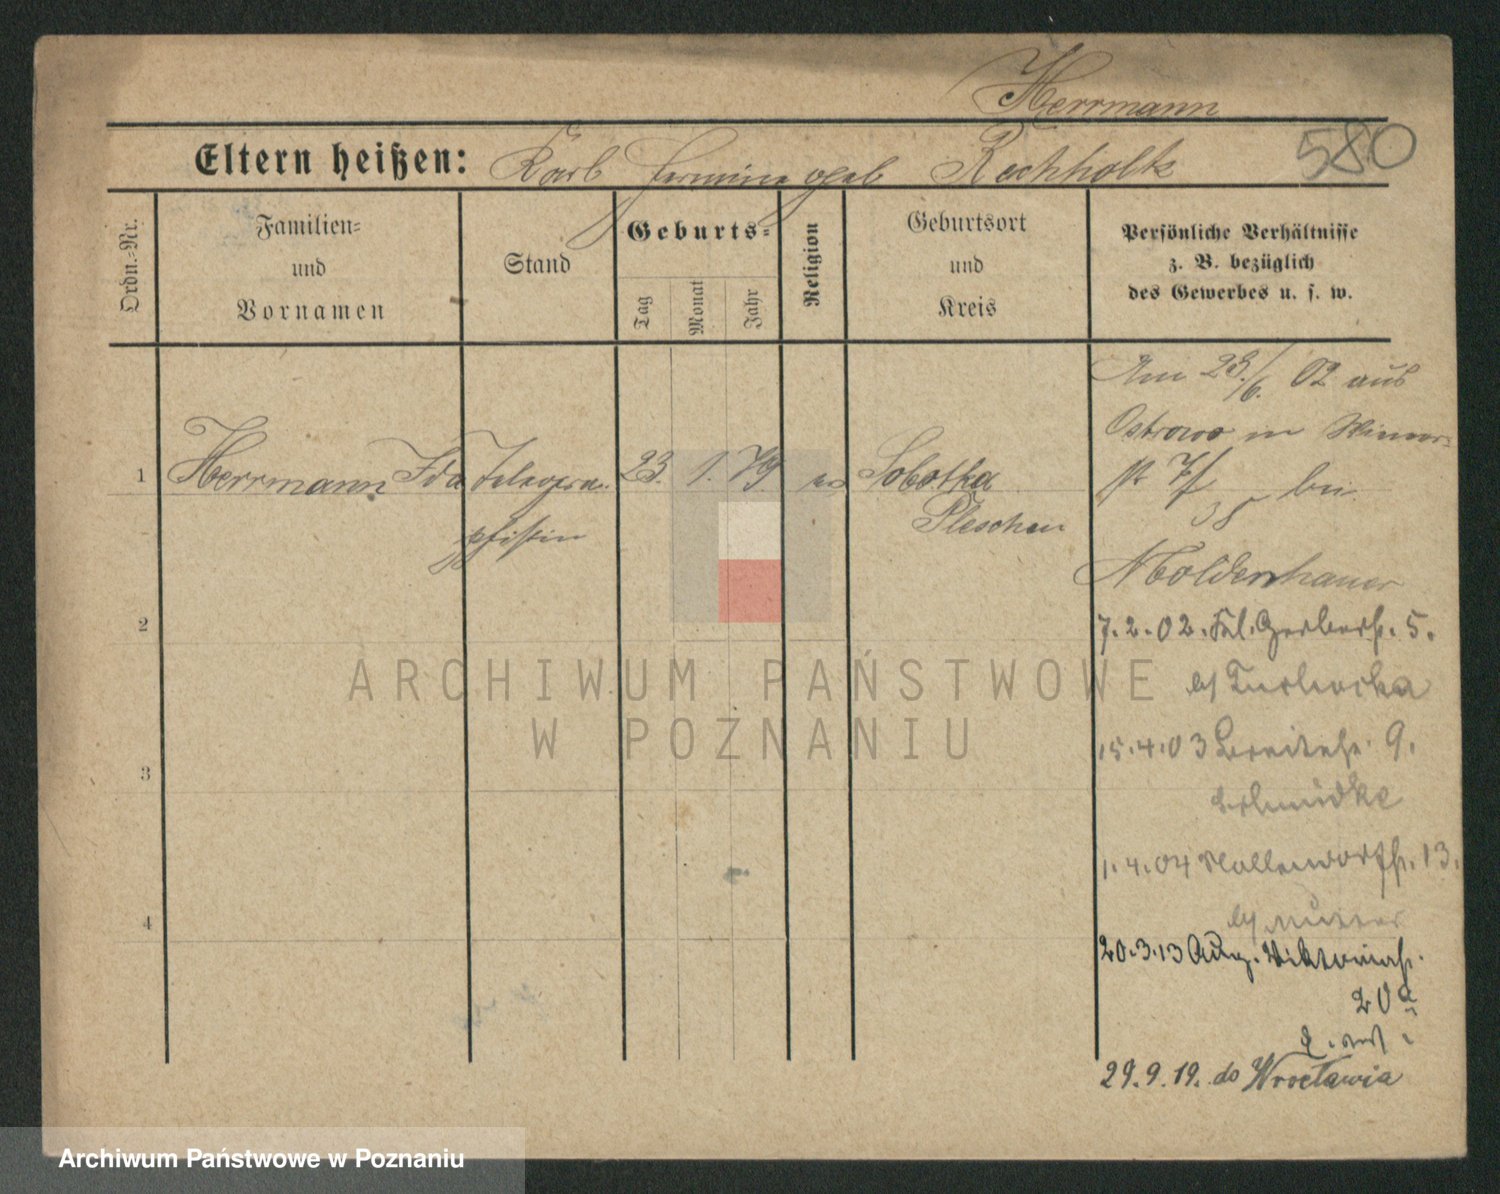 Herrmann
580
Eltern heißen: Karl Hermine geb Rechholtz
Ordn.-Nr.
Familien-
und
Vornamen
Stand
Geburts-
Tag
Monat
Jahr
Religion
Geburtsort
und
Kreis
Persönliche Verhältnisse
z. B. bezüglich
des Gewerbes u. s. w.
Am 23./6. 02 aus
Ostrowo in
1 Herrmann Ida Telegra- 23. 1. 79 ev Sobotka
phistin Pleschen
bei
38
Moldenhauer
2
7.2.02. Gerberst. 5.
b/
15.4.03 Breitestr. 9.
3
Schmidke
1.4.04 13.
b/ Mutter
4
20.3.13 Aug. Viktoriast.
20a
29.9.19. do Wrocławia
ARCHIWUM PAŃSTWOWE
W POZNANIU
Archiwum Państwowe w Poznaniu